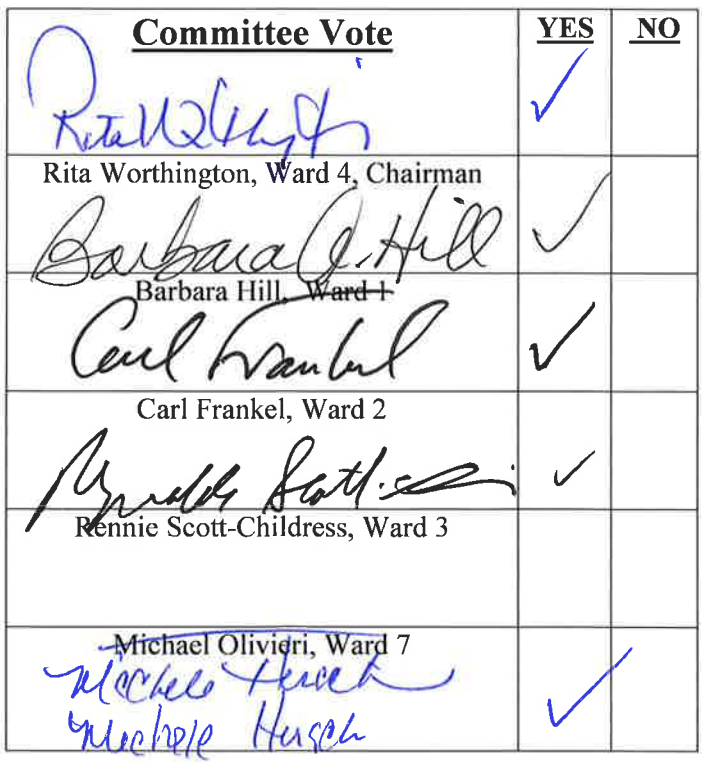 Committee Vote YES NO
Rita Worthington, Ward 4, Chairman
Barbara A. Hill
Barbara Hill, Ward 1
Carl Frankel
Carl Frankel, Ward 2
Rennie Scott-Childress, Ward 3
Michael Olivieri, Ward 7
Michele Hirsch
Michele Hirsch